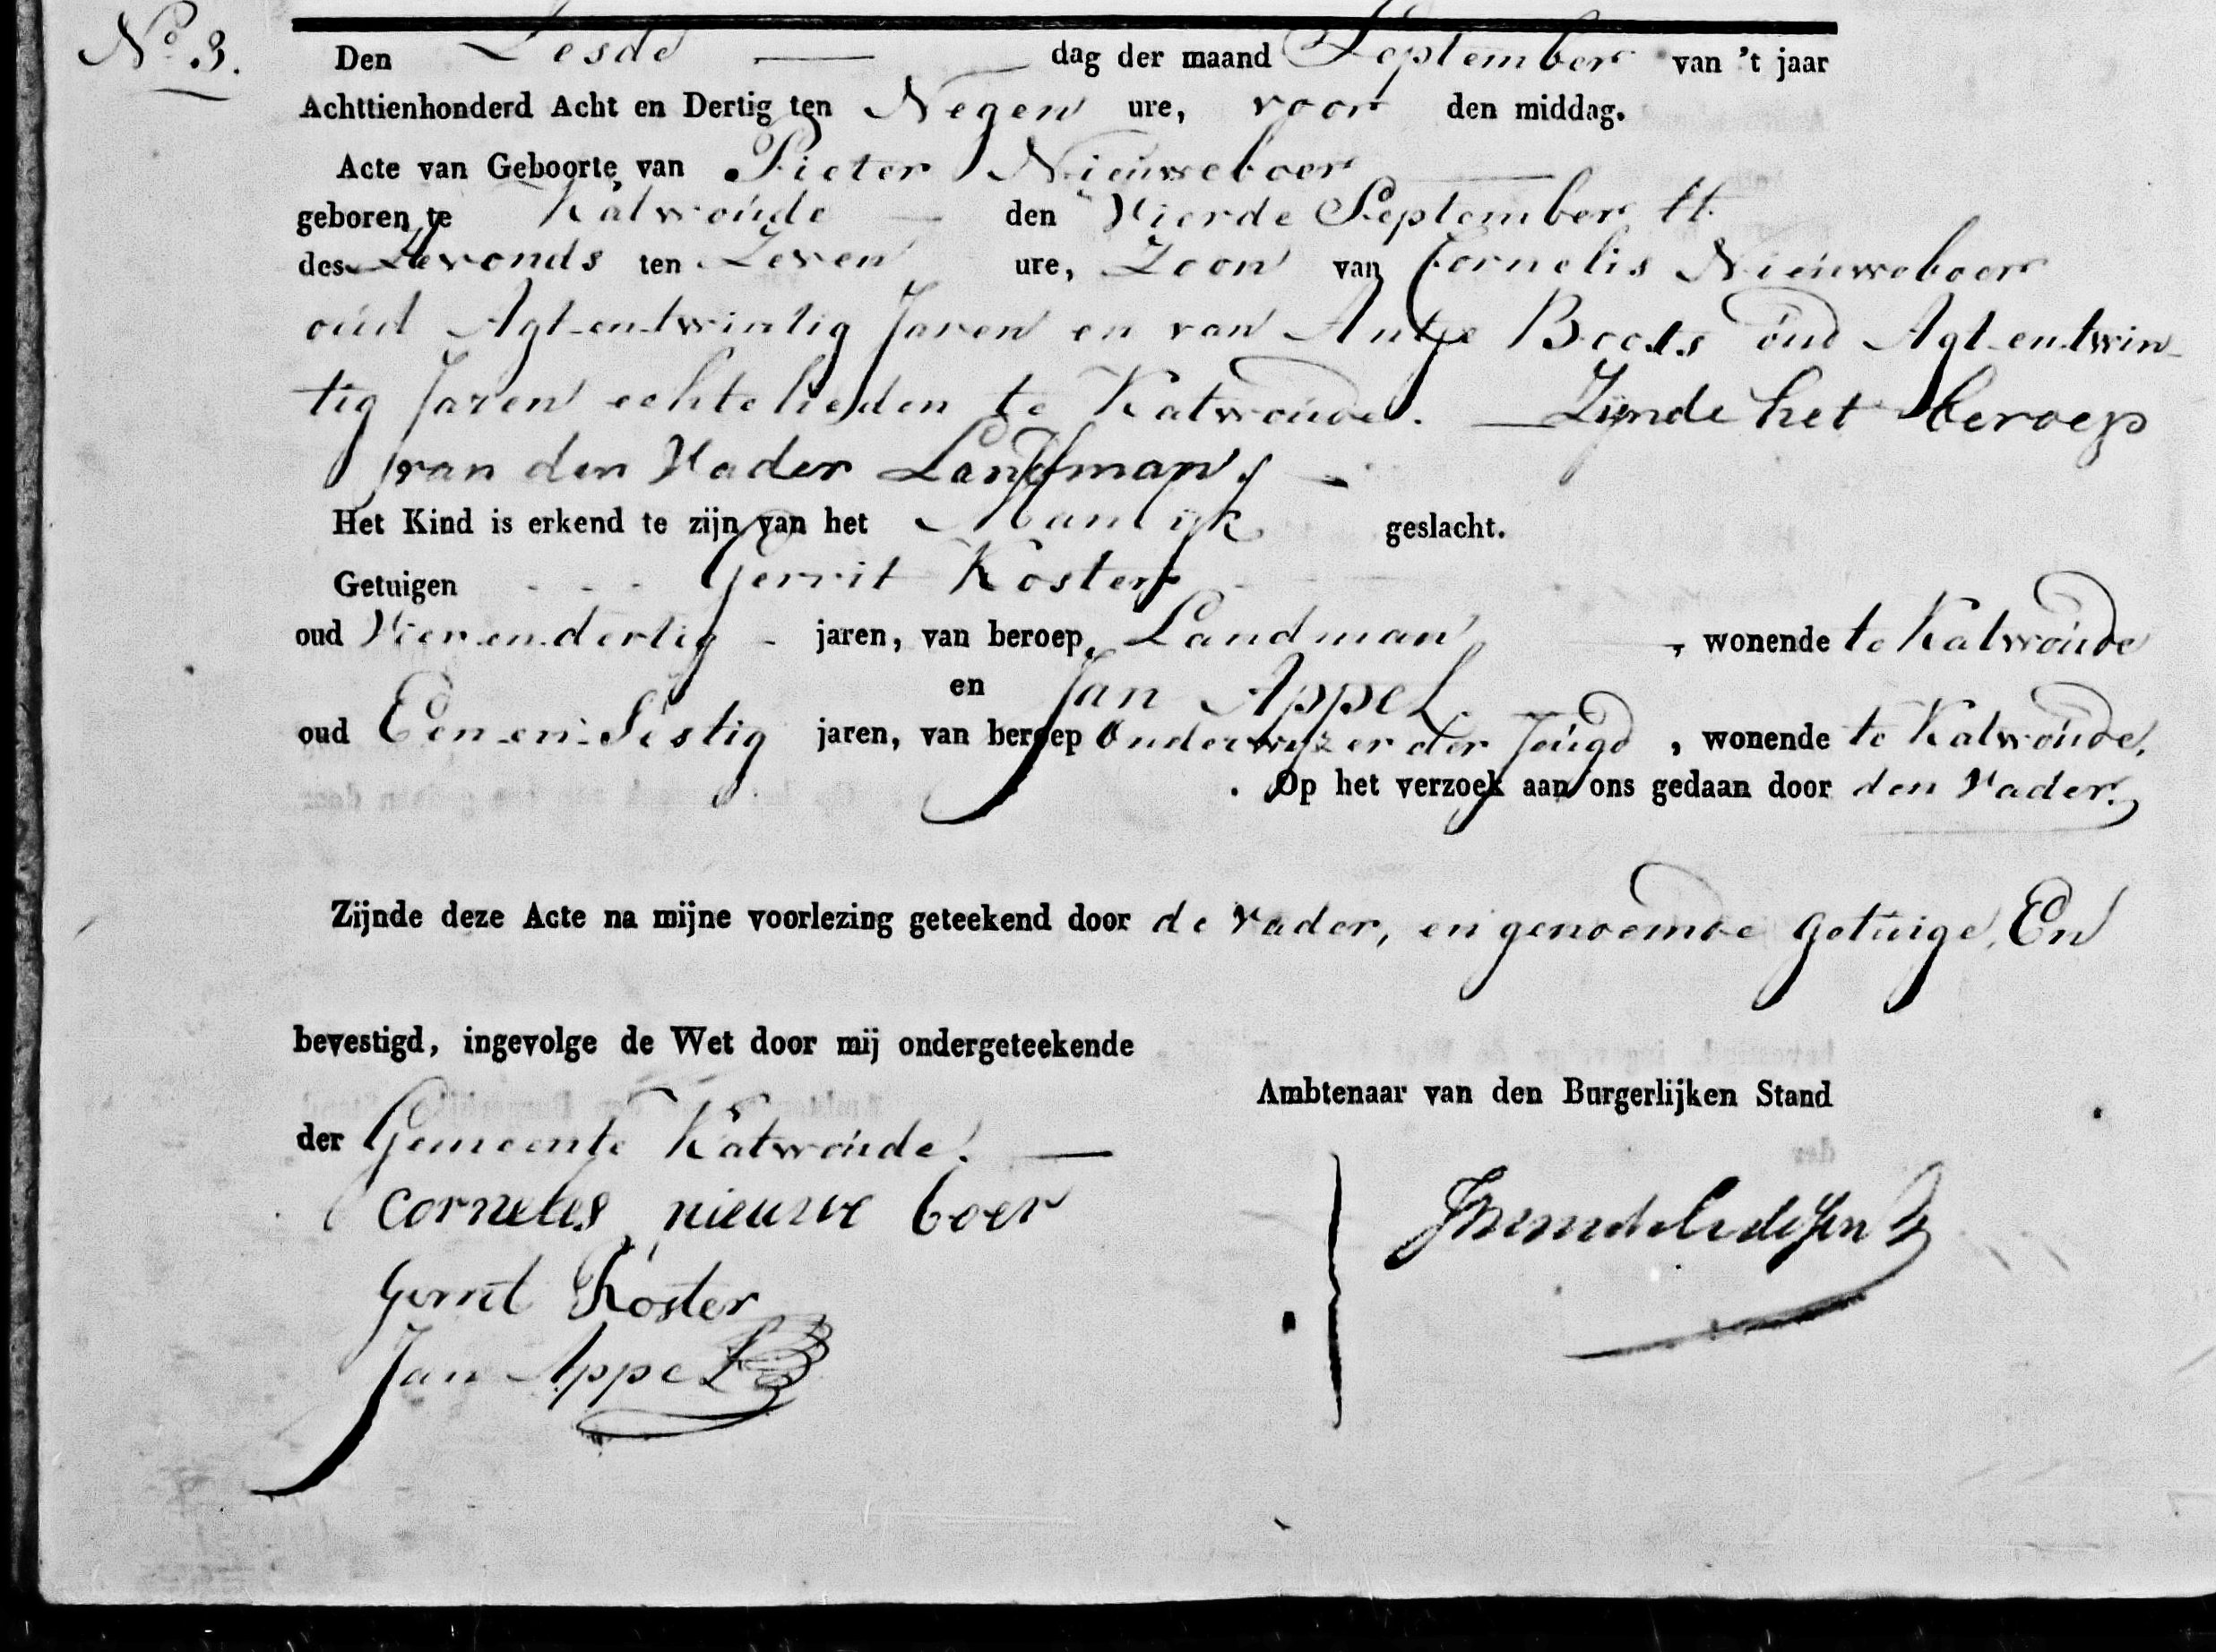 No 3.
Den Zesde dag der maand September van 't jaar
Achttienhonderd Acht en Dertig ten Negen ure, voor den middag.
Acte van Geboorte van Pieter Nieuweboer
geboren te Katwoude den Vierde September ll.
des Avonds ten Zeven ure, Zoon van Cornelis Nieuweboer
oud Agt-en-twintig Jaren en van Antje Boots oud Agt-en-twin-
tig Jaren echtelieden te Katwoude. Zijnde het beroep
van den Vader Landman
Het Kind is erkend te zijn van het Manlijk geslacht.
Getuigen Gerrit Koster
oud Vier-en-dertig jaren, van beroep Landman, wonende te Katwoude
en Jan Appel
oud Een-en-Sestig jaren, van beroep Onderwijzer der Jeugd, wonende te Katwoude.
Op het verzoek aan ons gedaan door den Vader.
Zijnde deze Acte na mijne voorlezing geteekend door de Vader, en genoemde getuige, En
bevestigd, ingevolge de Wet door mij ondergeteekende
Ambtenaar van den Burgerlijken Stand
der Gemeente Katwoude.
corneles nieuwe boer
Gerrit Koster
Jan Appel